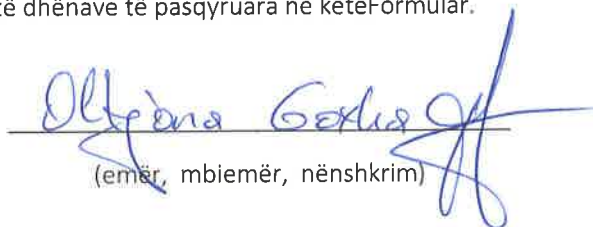 të dhënave të pasqyruara në këteFormular.
Oltjana Goxhaj
(emër, mbiemër, nënshkrim)